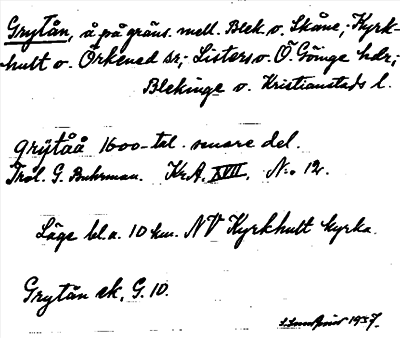 Grytån, å på gräns mell. Blek. o. Skåne; Kyrk-
hult o. Örkened sr; Listers o. Ö. Göinge hdr;
Blekinge o. Kristianstads l.
grÿtåå 1600-tal. senare del.
Trol. G. Buhrman. KrA, XVII, N:o 12.
Läge bl.a. 10 km. NV Kyrkhult kyrka.
Grytån ek, G. 10.
1937.